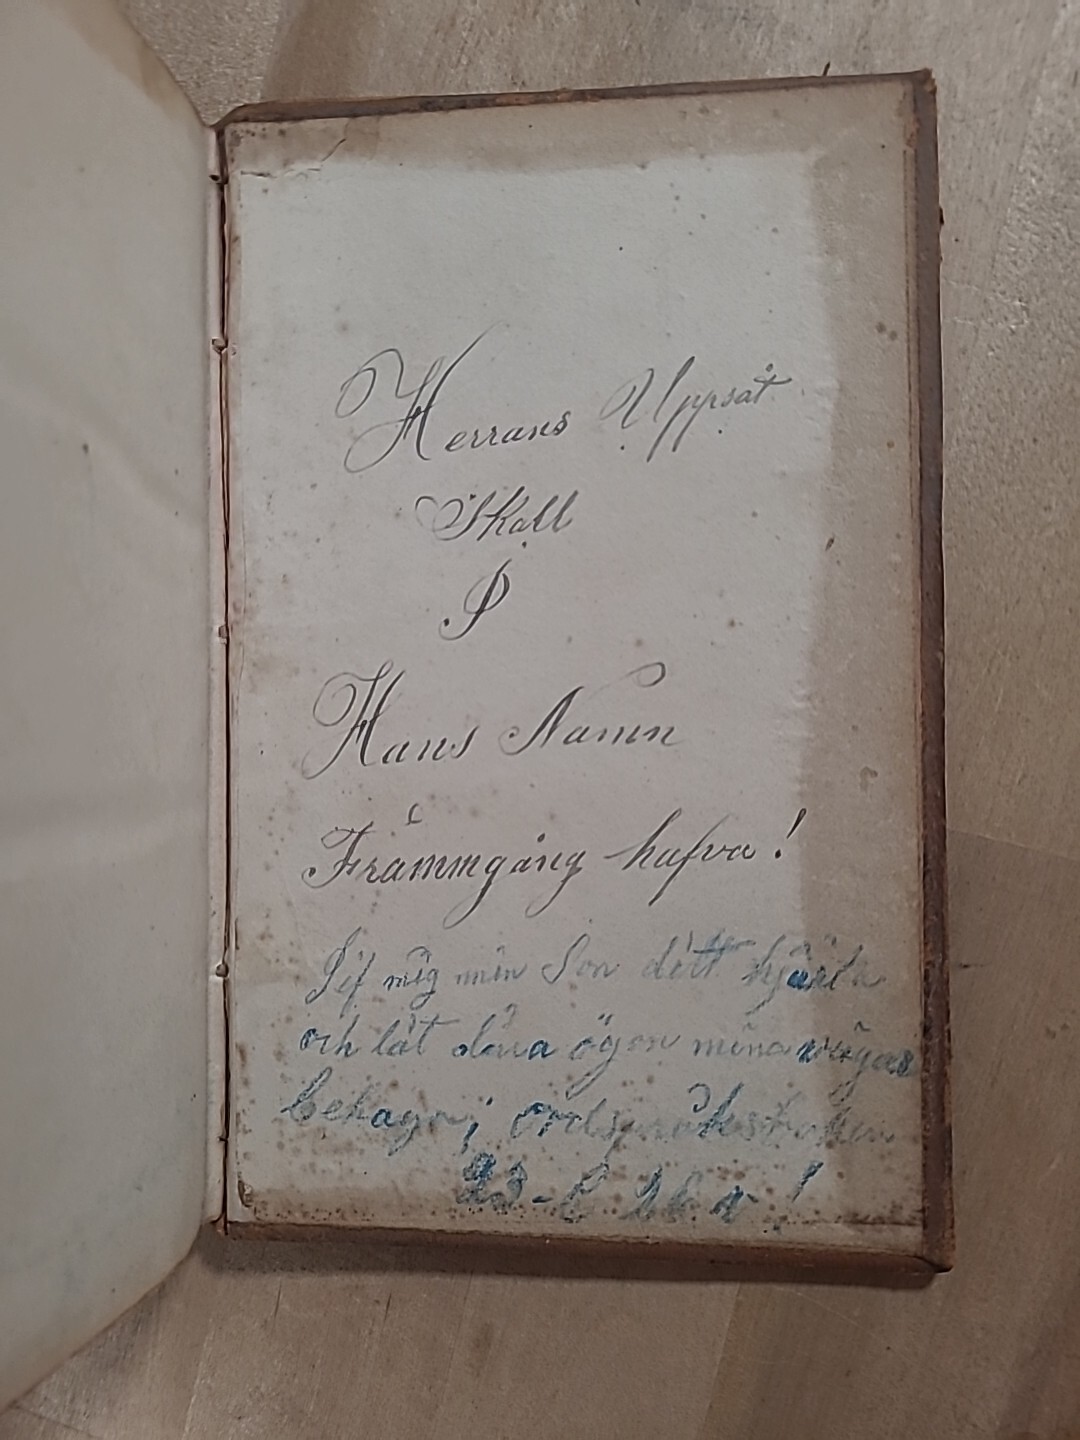 Herrans Uppsåt
Skall
I
Hans Namn
Främmgång hafva!
Gif mig min Son ditt hjärta
och låt dina ögon mina vägar
behaga; ordspråksboken
23-C 26 v!